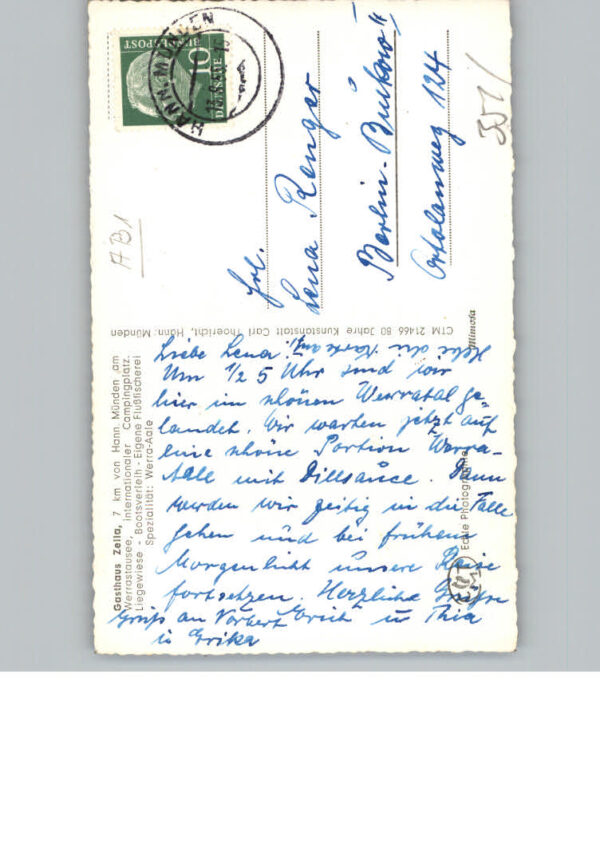 HANN. MÜNDEN
DEUTSCHE
BUNDESPOST
10
Frl.
Lena Renger
Berlin-Buckow II
Ortolanweg 124
351/
AB1
Gasthaus Zella, 7 km von Hann. Münden am
Werrastausee, internationaler Campingplatz.
Liegewiese - Bootsverleih - Eigene Flußfischerei
Spezialität: Werra-Aale
CTM 21466 80 Jahre Kunstanstalt Carl Thoericht, Hann. Münden
Mimosa
Echte Photographie
Liebe Lena!
Um 1/2 5 Uhr sind wir
hier im schönen Werratal ge-
landet. Wir warten jetzt auf
eine schöne Portion Werra-
aale mit Dillsauce. Dann
werden wir zeitig in die Falle
gehen und bei frühem
Morgenlicht unsere Reise
fortsetzen. Herzliche Grüße
Gruß an Norbert Erich u Thia
u Erika
Hebe die Karte auf!